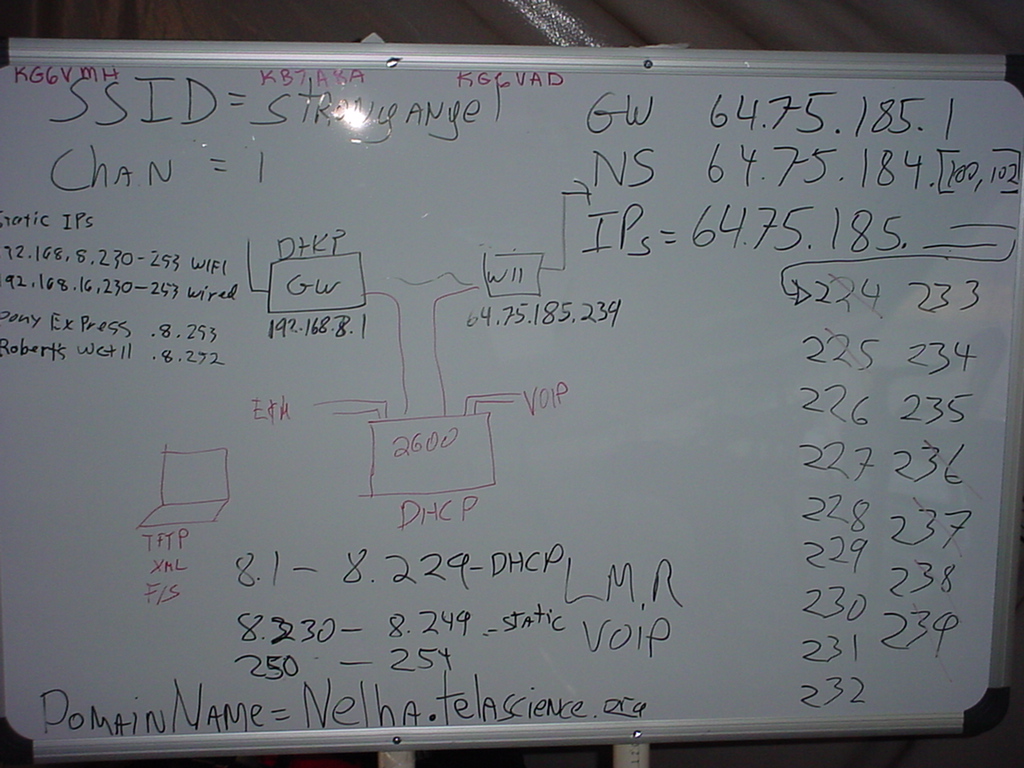 KG6VMH KB7AKA KG6VAD
SSID = STRONGANGEl
CHAN = 1
GW 64.75.185.1
NS 64.75.184.[100,102]
IPs = 64.75.185.
Static IPs
192.168.8.230-253 WIFI
192.168.16.230-253 wired
Pony Express .8.253
Robert's Wet11 .8.252
DHCP
GW
192.168.8.1
W11
64.75.185.239
224 233
225 234
226 235
227 236
228 237
229 238
230 239
231
232
E&M
VOIP
2600
DHCP
TFTP
XML
F/S
8.1 - 8.229 - DHCP
LMR
8.230 - 8.249 - static
VOIP
250 - 254
DOMAIN NAME = Nelha.telascience.org